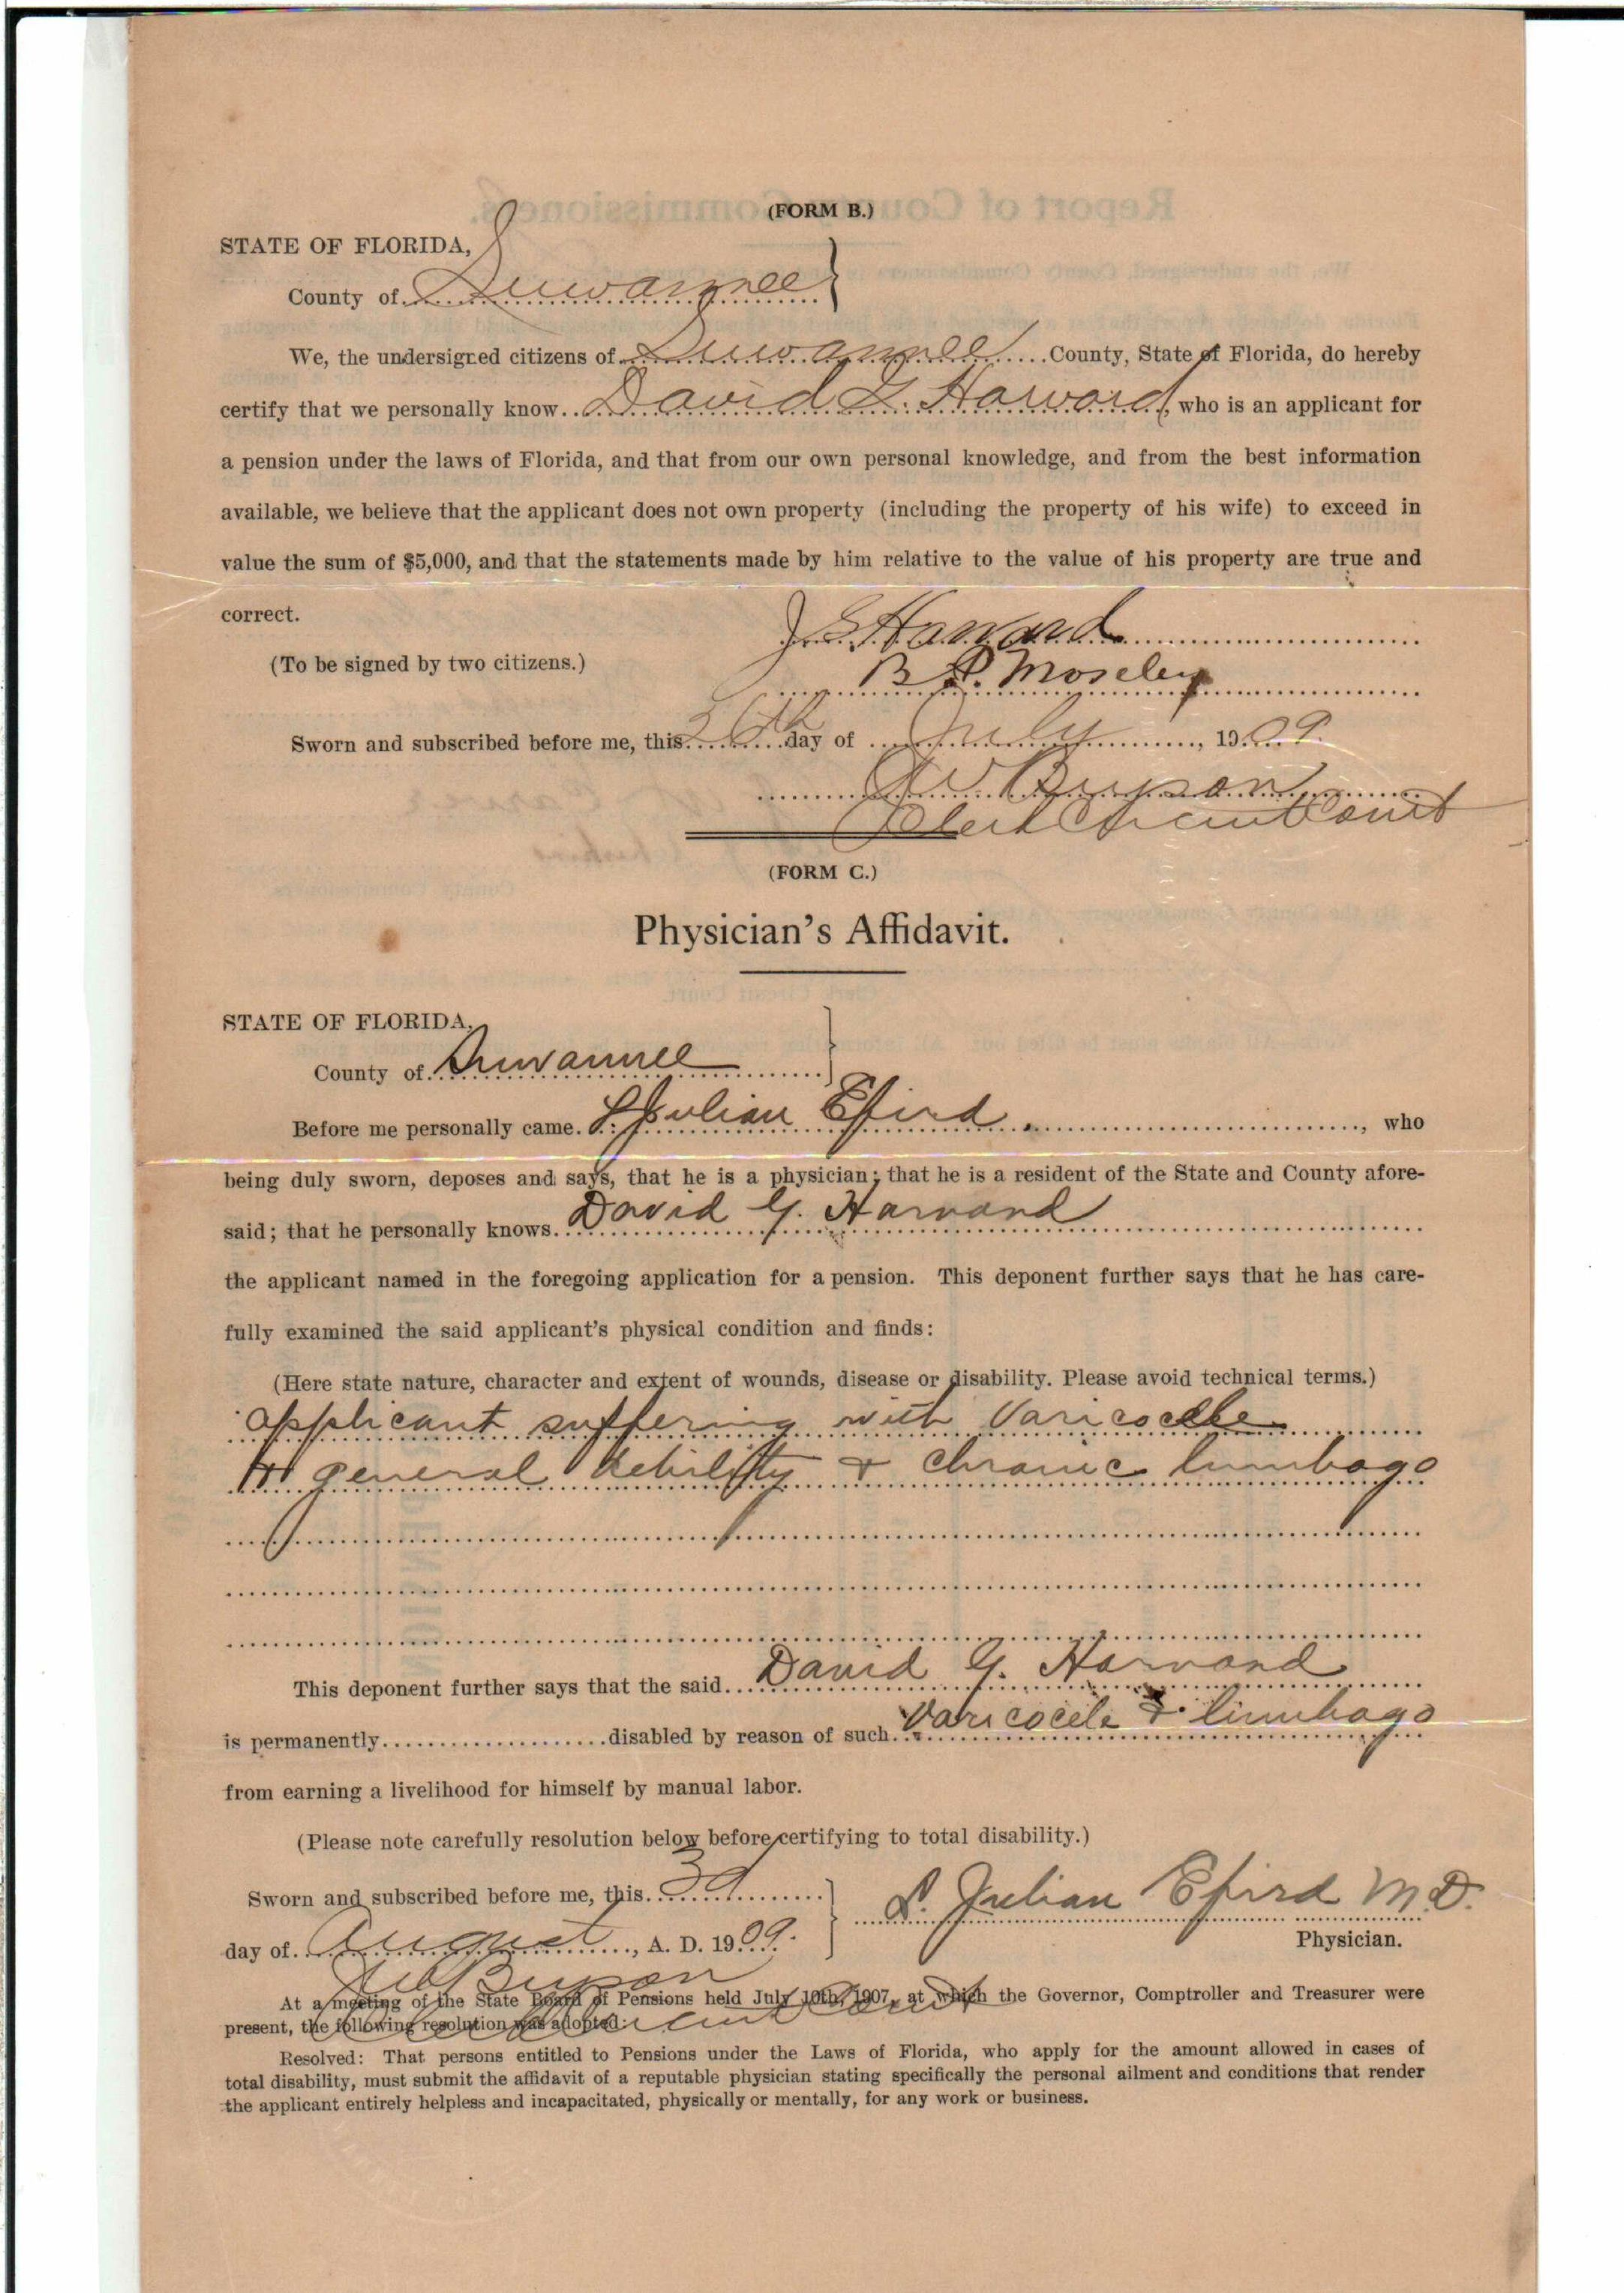 (FORM B.)
STATE OF FLORIDA,
County of Suwannee
We, the undersigned citizens of Suwannee County, State of Florida, do hereby
certify that we personally know David G. Harvard, who is an applicant for
a pension under the laws of Florida, and that from our own personal knowledge, and from the best information
available, we believe that the applicant does not own property (including the property of his wife) to exceed in
value the sum of $5,000, and that the statements made by him relative to the value of his property are true and
correct.
J S Harvard
(To be signed by two citizens.)
Moseley
Sworn and subscribed before me, this day of July, 1909.
Clerk Circuit Court
(FORM C.)
Physician's Affidavit.
STATE OF FLORIDA,
County of Suwannee
Before me personally came L. Julian Efird, who
being duly sworn, deposes and says, that he is a physician; that he is a resident of the State and County afore-
said; that he personally knows David G. Harvard
the applicant named in the foregoing application for a pension. This deponent further says that he has care-
fully examined the said applicant's physical condition and finds:
(Here state nature, character and extent of wounds, disease or disability. Please avoid technical terms.)
Applicant suffering with Varicocele
general debility & chronic lumbago
This deponent further says that the said David G. Harvard
is permanently disabled by reason of such Varicocele & lumbago
from earning a livelihood for himself by manual labor.
(Please note carefully resolution below before certifying to total disability.)
Sworn and subscribed before me, this 3d
L. Julian Efird M.D.
day of August, A. D. 1909.
Physician.
Clerk Circuit Court
At a meeting of the State Board of Pensions held July 10th, 1907, at which the Governor, Comptroller and Treasurer were
present, the following resolution was adopted:
Resolved: That persons entitled to Pensions under the Laws of Florida, who apply for the amount allowed in cases of
total disability, must submit the affidavit of a reputable physician stating specifically the personal ailment and conditions that render
the applicant entirely helpless and incapacitated, physically or mentally, for any work or business.